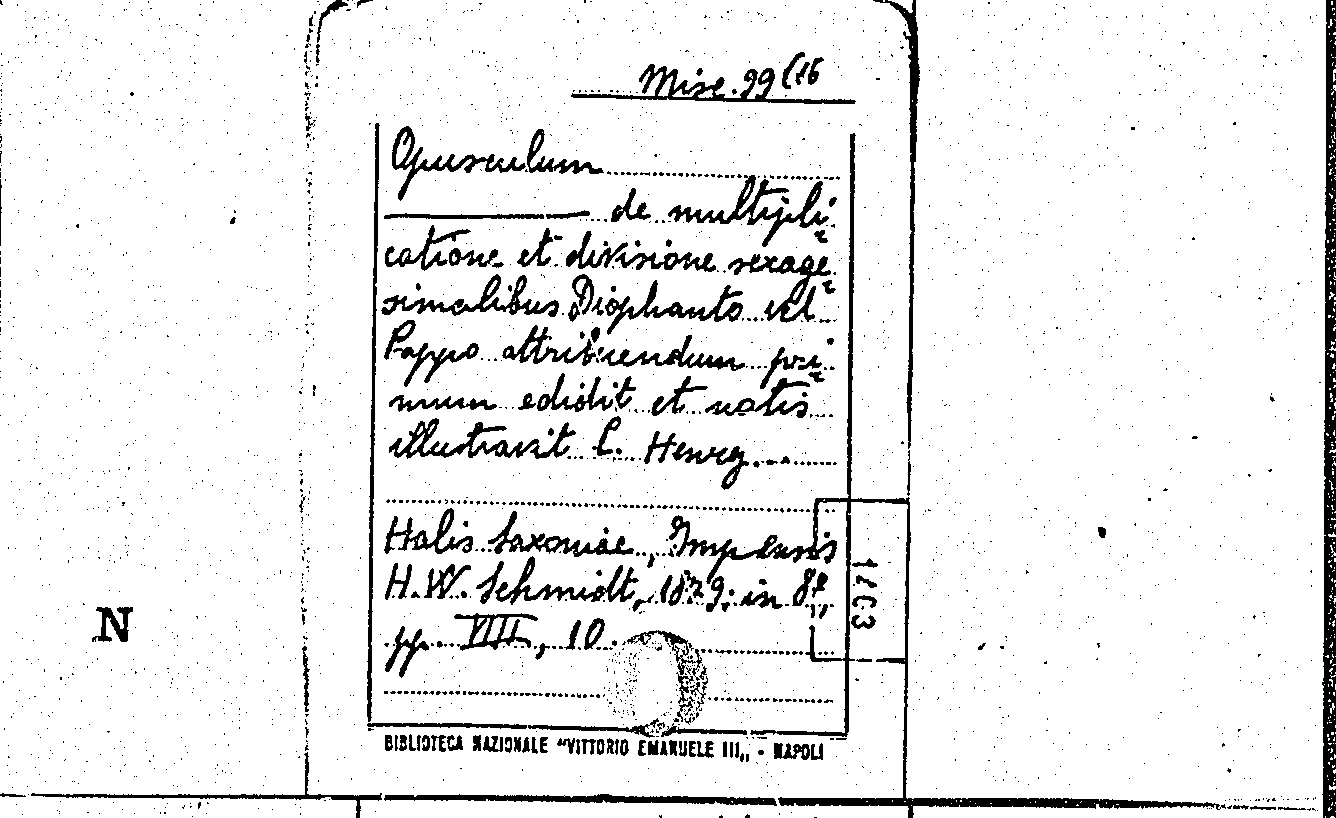 Misc. 99 (15
Opusculum
de multipli=
catione et divisione sexage=
simalibus Diophanto vel
Pappo attribuendum pri=
mum edidit et notis
illustravit C. Henry...
Halis Saxoniae, Impensis
H.W. Schmidt, 1879; in 8º,
pp. VIII, 10.
N
BIBLIOTECA NAZIONALE "VITTORIO EMANUELE III„ - NAPOLI